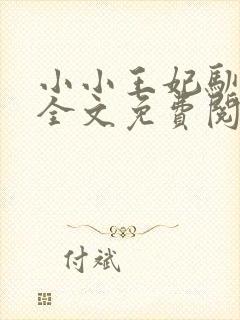 小小王妃馴
全文免費閱
付斌